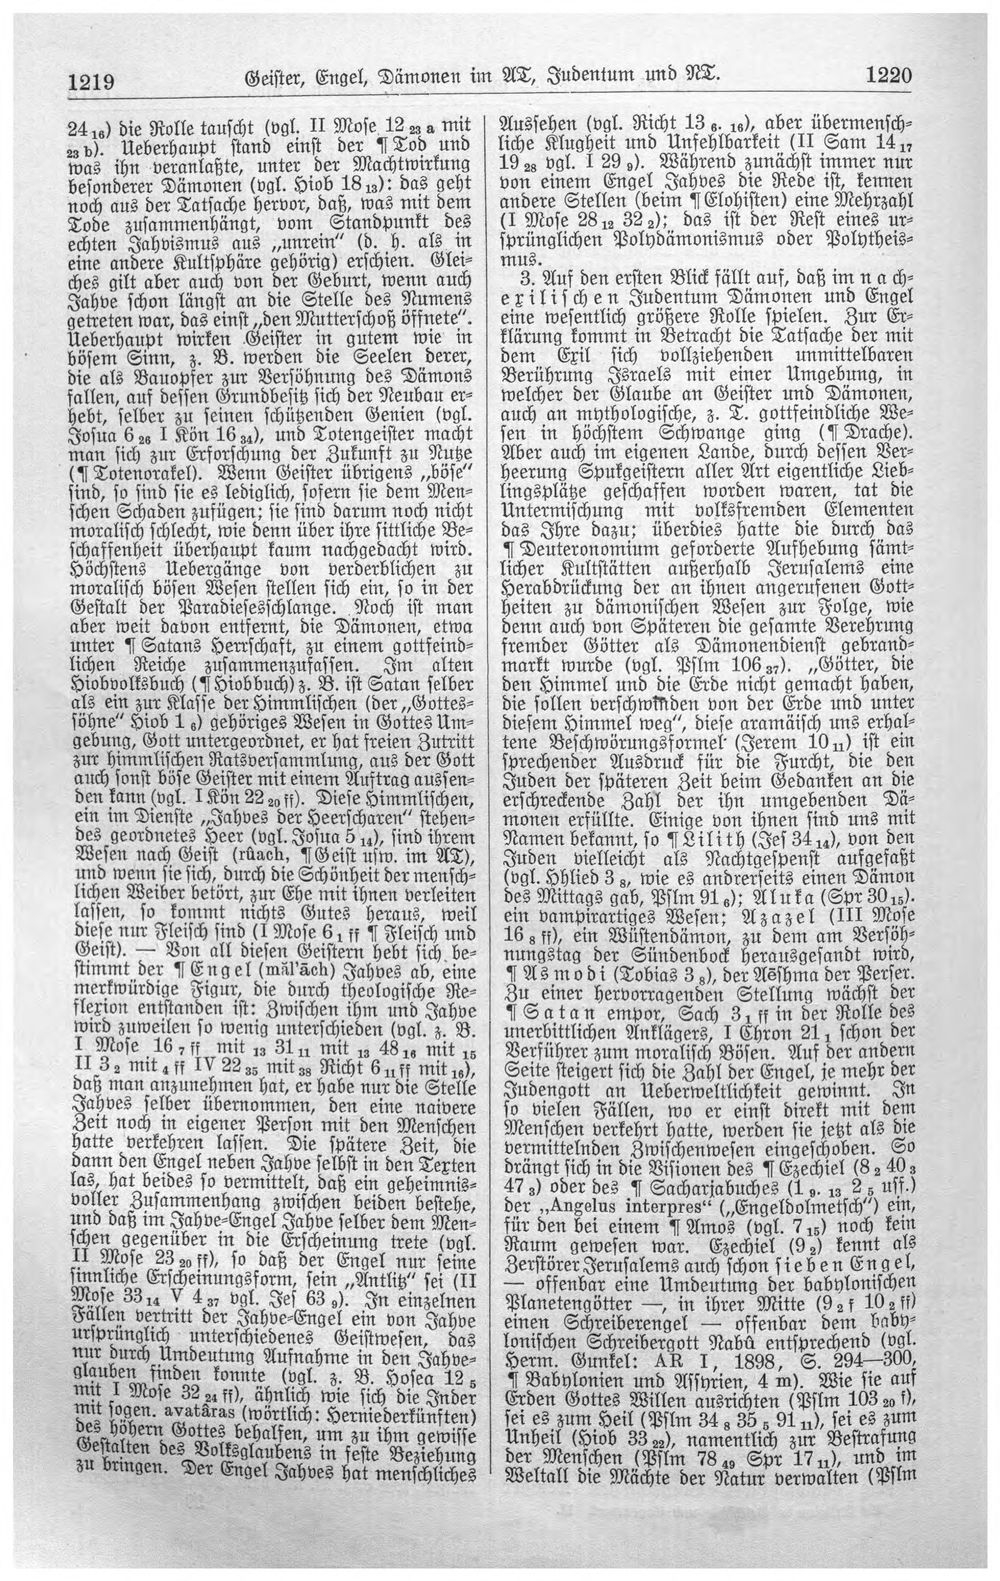 1219
Geister, Engel, Dämonen im AT, Judentum und NT.
1220
24 16) die Rolle tauscht (vgl. II Mose 12 23 a mit
23 b). Ueberhaupt stand einst der ¶ Tod und
was ihn veranlaßte, unter der Machtwirkung
besonderer Dämonen (vgl. Hiob 18 13): das geht
noch aus der Tatsache hervor, daß, was mit dem
Tode zusammenhängt, vom Standpunkt des
echten Jahvismus aus „unrein“ (d. h. als in
eine andere Kultsphäre gehörig) erschien. Glei-
ches gilt aber auch von der Geburt, wenn auch
Jahve schon längst an die Stelle des Numens
getreten war, das einst „den Mutterschoß öffnete“.
Ueberhaupt wirken Geister in gutem wie in
bösem Sinn, z. B. werden die Seelen derer,
die als Bauopfer zur Versöhnung des Dämons
fallen, auf dessen Grundbesitz sich der Neubau er-
hebt, selber zu seinen schützenden Genien (vgl.
Josua 6 26 I Kön 16 34), und Totengeister macht
man sich zur Erforschung der Zukunft zu Nutze
(¶ Totenorakel). Wenn Geister übrigens „böse“
sind, so sind sie es lediglich, sofern sie dem Men-
schen Schaden zufügen; sie sind darum noch nicht
moralisch schlecht, wie denn über ihre sittliche Be-
schaffenheit überhaupt kaum nachgedacht wird.
Höchstens Uebergänge von verderblichen zu
moralisch bösen Wesen stellen sich ein, so in der
Gestalt der Paradiesesschlange. Noch ist man
aber weit davon entfernt, die Dämonen, etwa
unter ¶ Satans Herrschaft, zu einem gottfeind-
lichen Reiche zusammenzufassen. Im alten
Hiobvolksbuch (¶ Hiobbuch) z. B. ist Satan selber
als ein zur Klasse der Himmlischen (der „Gottes-
söhne“ Hiob 1 6) gehöriges Wesen in Gottes Um-
gebung, Gott untergeordnet, er hat freien Zutritt
zur himmlischen Ratsversammlung, aus der Gott
auch sonst böse Geister mit einem Auftrag aussen-
den kann (vgl. I Kön 22 20 ff). Diese Himmlischen,
ein im Dienste „Jahves der Heerscharen“ stehen-
des geordnetes Heer (vgl. Josua 5 14), sind ihrem
Wesen nach Geist (rûach, ¶ Geist usw. im AT),
und wenn sie sich, durch die Schönheit der mensch-
lichen Weiber betört, zur Ehe mit ihnen verleiten
lassen, so kommt nichts Gutes heraus, weil
diese nur Fleisch sind (I Mose 6 1 ff ¶ Fleisch und
Geist). — Von all diesen Geistern hebt sich be-
stimmt der ¶ Engel (mal'ach) Jahves ab, eine
merkwürdige Figur, die durch theologische Re-
flexion entstanden ist: Zwischen ihm und Jahve
wird zuweilen so wenig unterschieden (vgl. z. B.
I Mose 16 7 ff mit 13 31 11 mit 13 48 16 mit 15
II 3 2 mit 4 ff IV 22 35 mit 38 Richt 6 11 ff mit 16),
daß man anzunehmen hat, er habe nur die Stelle
Jahves selber übernommen, den eine naivere
Zeit noch in eigener Person mit den Menschen
hatte verkehren lassen. Die spätere Zeit, die
dann den Engel neben Jahve selbst in den Texten
las, hat beides so vermittelt, daß ein geheimnis-
voller Zusammenhang zwischen beiden bestehe,
und daß im Jahve-Engel Jahve selber dem Men-
schen gegenüber in die Erscheinung trete (vgl.
II Mose 23 20 ff), so daß der Engel nur seine
sinnliche Erscheinungsform, sein „Antlitz“ sei (II
Mose 33 14 V 4 37 vgl. Jes 63 9). In einzelnen
Fällen vertritt der Jahve-Engel ein von Jahve
ursprünglich unterschiedenes Geistwesen, das
nur durch Umdeutung Aufnahme in den Jahve-
glauben finden konnte (vgl. z. B. Hosea 12 5
mit I Mose 32 24 ff), ähnlich wie sich die Inder
mit sogen. avatâras (wörtlich: Herniederkünften)
des höhern Gottes behalfen, um zu ihm gewisse
Gestalten des Volksglaubens in feste Beziehung
zu bringen. Der Engel Jahves hat menschliches
Aussehen (vgl. Richt 13 6. 16), aber übermensch-
liche Klugheit und Unfehlbarkeit (II Sam 14 17
19 28 vgl. I 29 9). Während zunächst immer nur
von einem Engel Jahves die Rede ist, kennen
andere Stellen (beim ¶ Elohisten) eine Mehrzahl
(I Mose 28 12 32 2); das ist der Rest eines ur-
sprünglichen Polydämonismus oder Polytheis-
mus.
3. Auf den ersten Blick fällt auf, daß im nach-
exilischen Judentum Dämonen und Engel
eine wesentlich größere Rolle spielen. Zur Er-
klärung kommt in Betracht die Tatsache der mit
dem Exil sich vollziehenden unmittelbaren
Berührung Israels mit einer Umgebung, in
welcher der Glaube an Geister und Dämonen,
auch an mythologische, z. T. gottfeindliche We-
sen in höchstem Schwange ging (¶ Drache).
Aber auch im eigenen Lande, durch dessen Ver-
heerung Spukgeistern aller Art eigentliche Lieb-
lingsplätze geschaffen worden waren, tat die
Untermischung mit volksfremden Elementen
das Ihre dazu; überdies hatte die durch das
¶ Deuteronomium geforderte Aufhebung sämt-
licher Kultstätten außerhalb Jerusalems eine
Herabdrückung der an ihnen angerufenen Gott-
heiten zu dämonischen Wesen zur Folge, wie
denn auch von Späteren die gesamte Verehrung
fremder Götter als Dämonendienst gebrand-
markt wurde (vgl. Pslm 106 37). „Götter, die
den Himmel und die Erde nicht gemacht haben,
die sollen verschwinden von der Erde und unter
diesem Himmel weg“, diese aramäisch uns erhal-
tene Beschwörungsformel (Jerem 10 11) ist ein
sprechender Ausdruck für die Furcht, die den
Juden der späteren Zeit beim Gedanken an die
erschreckende Zahl der ihn umgebenden Dä-
monen erfüllte. Einige von ihnen sind uns mit
Namen bekannt, so ¶ Lilith (Jes 34 14), von den
Juden vielleicht als Nachtgespenst aufgefaßt
(vgl. Hhlied 3 8, wie es andrerseits einen Dämon
des Mittags gab, Pslm 91 6); Aluka (Spr 30 15).
ein vampirartiges Wesen; Azazel (III Mose
16 8 ff), ein Wüstendämon, zu dem am Versöh-
nungstag der Sündenbock herausgesandt wird,
¶ Asmodi (Tobias 3 8), der Aēshma der Perser.
Zu einer hervorragenden Stellung wächst der
¶ Satan empor, Sach 3 1 ff in der Rolle des
unerbittlichen Anklägers, I Chron 21 1 schon der
Verführer zum moralisch Bösen. Auf der andern
Seite steigert sich die Zahl der Engel, je mehr der
Judengott an Ueberweltlichkeit gewinnt. In
so vielen Fällen, wo er einst direkt mit dem
Menschen verkehrt hatte, werden sie jetzt als die
vermittelnden Zwischenwesen eingeschoben. So
drängt sich in die Visionen des ¶ Ezechiel (8 2 40 3
47 3) oder des ¶ Sacharjabuches (1 9. 13 2 5 uff.)
der „Angelus interpres“ („Engeldolmetsch“) ein,
für den bei einem ¶ Amos (vgl. 7 15) noch kein
Raum gewesen war. Ezechiel (9 2) kennt als
Zerstörer Jerusalems auch schon sieben Engel,
— offenbar eine Umdeutung der babylonischen
Planetengötter —, in ihrer Mitte (9 2 f 10 2 ff)
einen Schreiberengel — offenbar dem baby-
lonischen Schreibergott Nabû entsprechend (vgl.
Herm. Gunkel: AR I, 1898, S. 294—300,
¶ Babylonien und Assyrien, 4 m). Wie sie auf
Erden Gottes Willen ausrichten (Pslm 103 20 f),
sei es zum Heil (Pslm 34 8 35 5 91 11), sei es zum
Unheil (Hiob 33 22), namentlich zur Bestrafung
der Menschen (Pslm 78 49 Spr 17 11), und im
Weltall die Mächte der Natur verwalten (Pslm